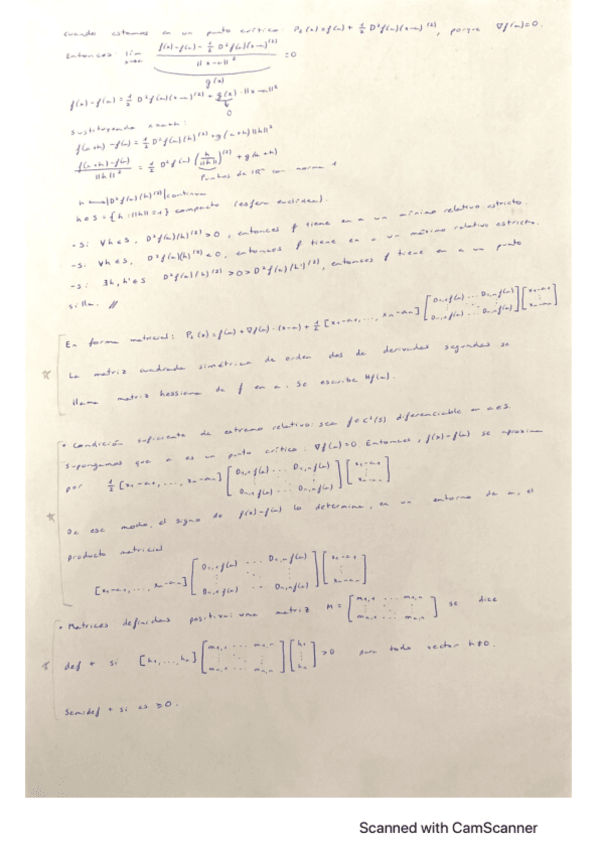 Cuando estamos en un punto crítico: P₂(x) = f(a) + 1/2 D²f(a)(x-a)⁽²⁾, porque ∇f(a)=0.
Entonces: lim x→a (f(x)-f(a)-1/2 D²f(a)(x-a)⁽²⁾)/||x-a||² = 0
g(x)
f(x)-f(a) = 1/2 D²f(a)(x-a)⁽²⁾ + g(x)·||x-a||²
0
Sustituyendo x=a+h:
f(a+h)-f(a) = 1/2 D²f(a)(h)⁽²⁾ + g(a+h)||h||²
(f(a+h)-f(a))/||h||² = 1/2 D²f(a)(h/||h||)⁽²⁾ + g(a+h)
Puntos de ℝⁿ con norma 1
h ↦ |D²f(a)(h)⁽²⁾| continua
h∈S = {h : ||h||=1} compacto (esfera euclídea).
- Si ∀h∈S, D²f(a)(h)⁽²⁾>0, entonces f tiene en a un mínimo relativo estricto.
- Si ∀h∈S, D²f(a)(h)⁽²⁾<0, entonces f tiene en a un máximo relativo estricto.
- Si ∃h,h'∈S D²f(a)(h)⁽²⁾>0>D²f(a)(h')⁽²⁾, entonces f tiene en a un punto
silla. //
En forma matricial: P₂(x) = f(a)+∇f(a)·(x-a)+1/2 [x₁-a₁, ..., xₙ-aₙ] [D₁,₁f(a) ... D₁,ₙf(a) ⋮ ⋮ Dₙ,₁f(a) ... Dₙ,ₙf(a)] [x₁-a₁ ⋮ xₙ-aₙ]
La matriz cuadrada simétrica de orden dos de derivadas segundas se
llama matriz hessiana de f en a. Se escribe Hf(a).
• Condición suficiente de extremo relativo: sea f∈C²(S) diferenciable en a∈S.
Supongamos que a es un punto crítico: ∇f(a)=0. Entonces, f(x)-f(a) se aproxima
por 1/2 [x₁-a₁, ..., xₙ-aₙ] [D₁,₁f(a) ... D₁,ₙf(a) ⋮ ⋮ Dₙ,₁f(a) ... Dₙ,ₙf(a)] [x₁-a₁ ⋮ xₙ-aₙ]
De ese modo, el signo de f(x)-f(a) lo determina, en un entorno de a, el
producto matricial
[x₁-a₁, ..., xₙ-aₙ] [D₁,₁f(a) ... D₁,ₙf(a) ⋮ ⋮ Dₙ,₁f(a) ... Dₙ,ₙf(a)] [x₁-a₁ ⋮ xₙ-aₙ]
• Matrices definidas positivas: una matriz M = [m₁,₁ ... m₁,ₙ ⋮ ⋮ mₙ,₁ ... mₙ,ₙ] se dice
def + si [h₁, ..., hₙ] [m₁,₁ ... m₁,ₙ ⋮ ⋮ mₙ,₁ ... mₙ,ₙ] [h₁ ⋮ hₙ] >0 para todo vector h≠0.
Semidef + si es ≥0.
Scanned with CamScanner